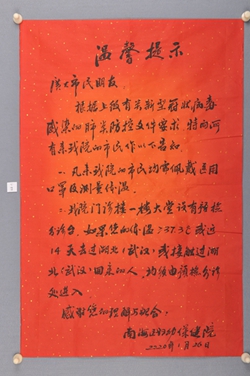 温馨提示
广大市民朋友：
根据上级有关新型冠状病毒
感染的肺炎防控文件要求，特向所
有来我院的市民作以下告知
一、凡来我院的市民均需佩戴医用
口罩及测量体温。
二、我院门诊楼一楼大堂设有预检
分诊台，如果您的体温>37.3℃或近
14天去过湖北（武汉）或接触过湖
北（武汉）回来的人，均经由预检分诊
处进入
感谢您的理解与配合。
南海妇幼保健院
2020年1月26日